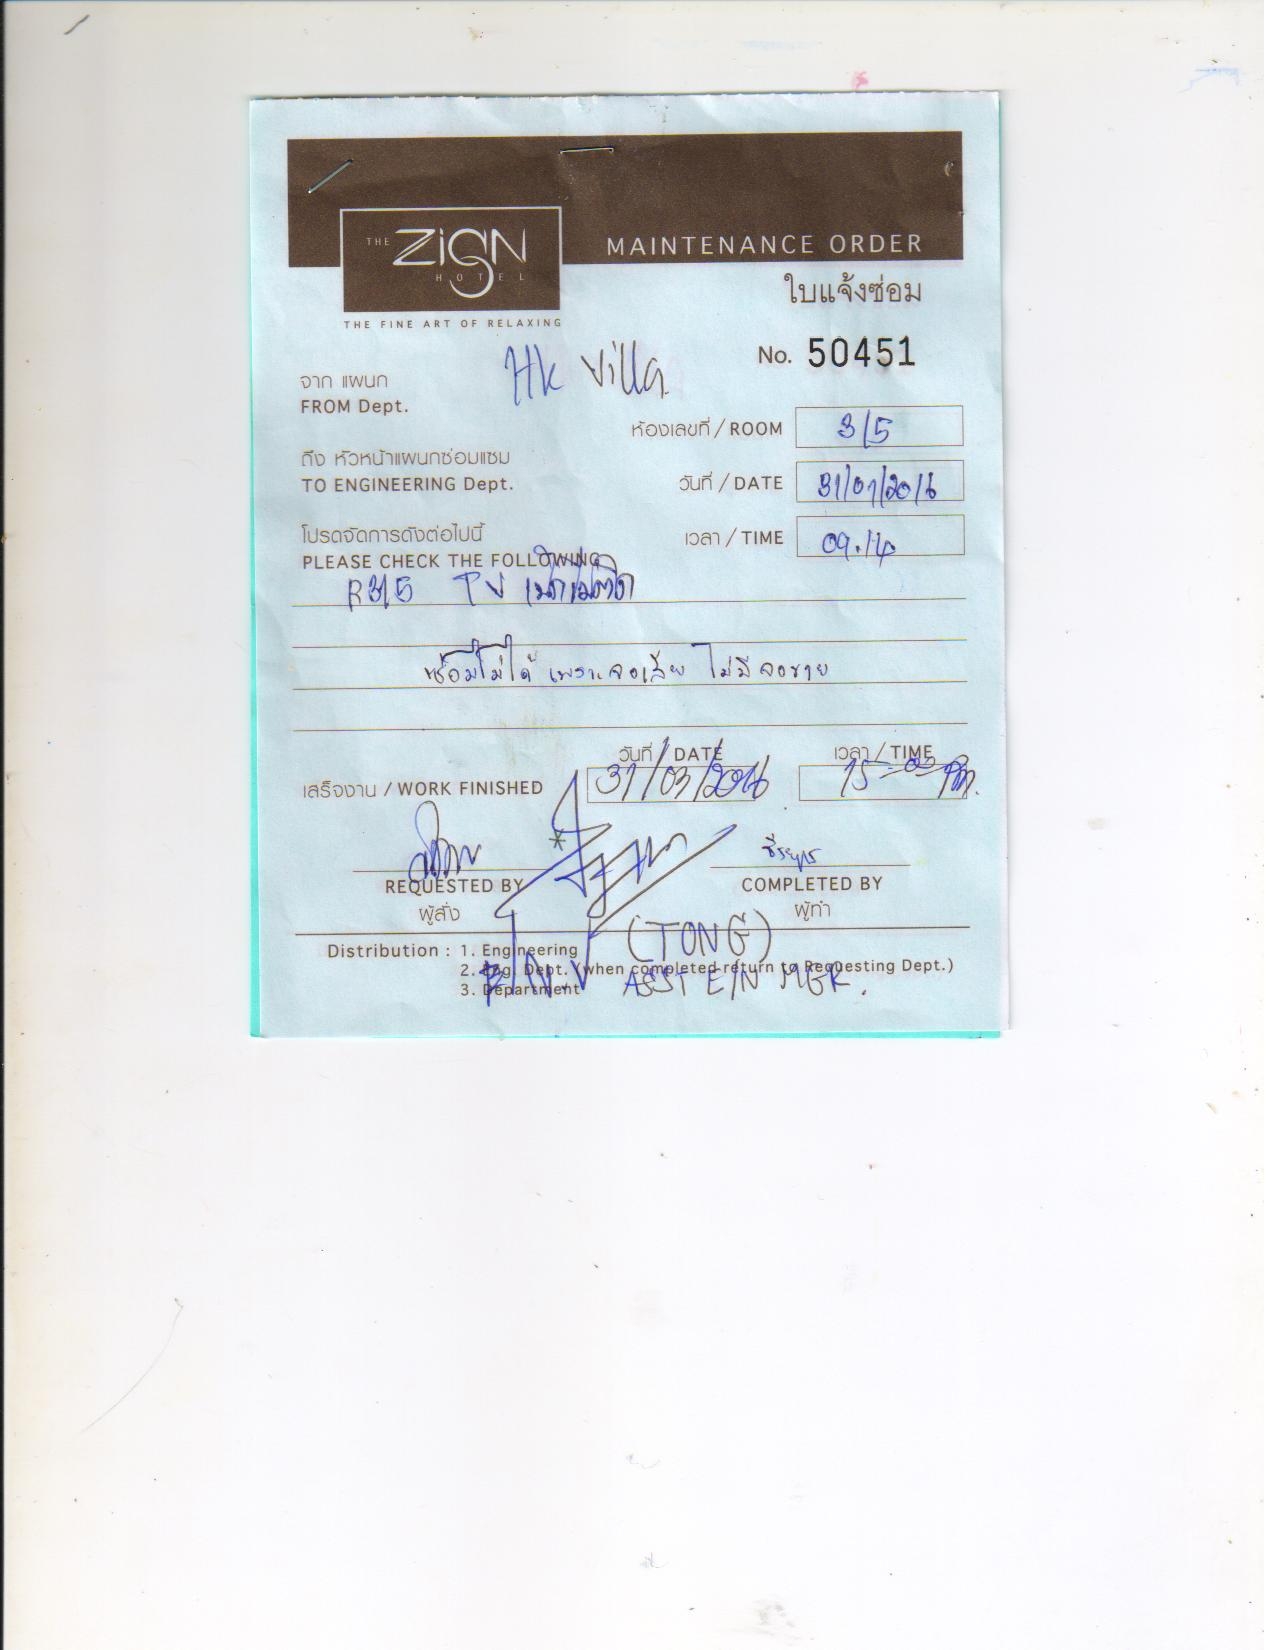 THE ZIGN
HOTEL
THE FINE ART OF RELAXING
MAINTENANCE ORDER
ใบแจ้งซ่อม
No. 50451
จาก แผนก
FROM Dept.
Hk Villa
ห้องเลขที่ / ROOM 3/5
ถึง หัวหน้าแผนกซ่อมแซม
TO ENGINEERING Dept.
วันที่ / DATE 31/01/2016
โปรดจัดการดังต่อไปนี้
PLEASE CHECK THE FOLLOWING
เวลา / TIME 09.14
R3/5 TV เปิดไม่ติด
ซ่อมไม่ได้ เพราะจอเสีย ไม่มีจอขาย
วันที่ / DATE เวลา / TIME
เสร็จงาน / WORK FINISHED 31/03/2016 15-03 PM.
REQUESTED BY
ผู้สั่ง
COMPLETED BY
ผู้ทำ
(TONG)
ASST E/N MGR.
Distribution : 1. Engineering
2. Eng. Dept. (when completed return to Requesting Dept.)
3. Department